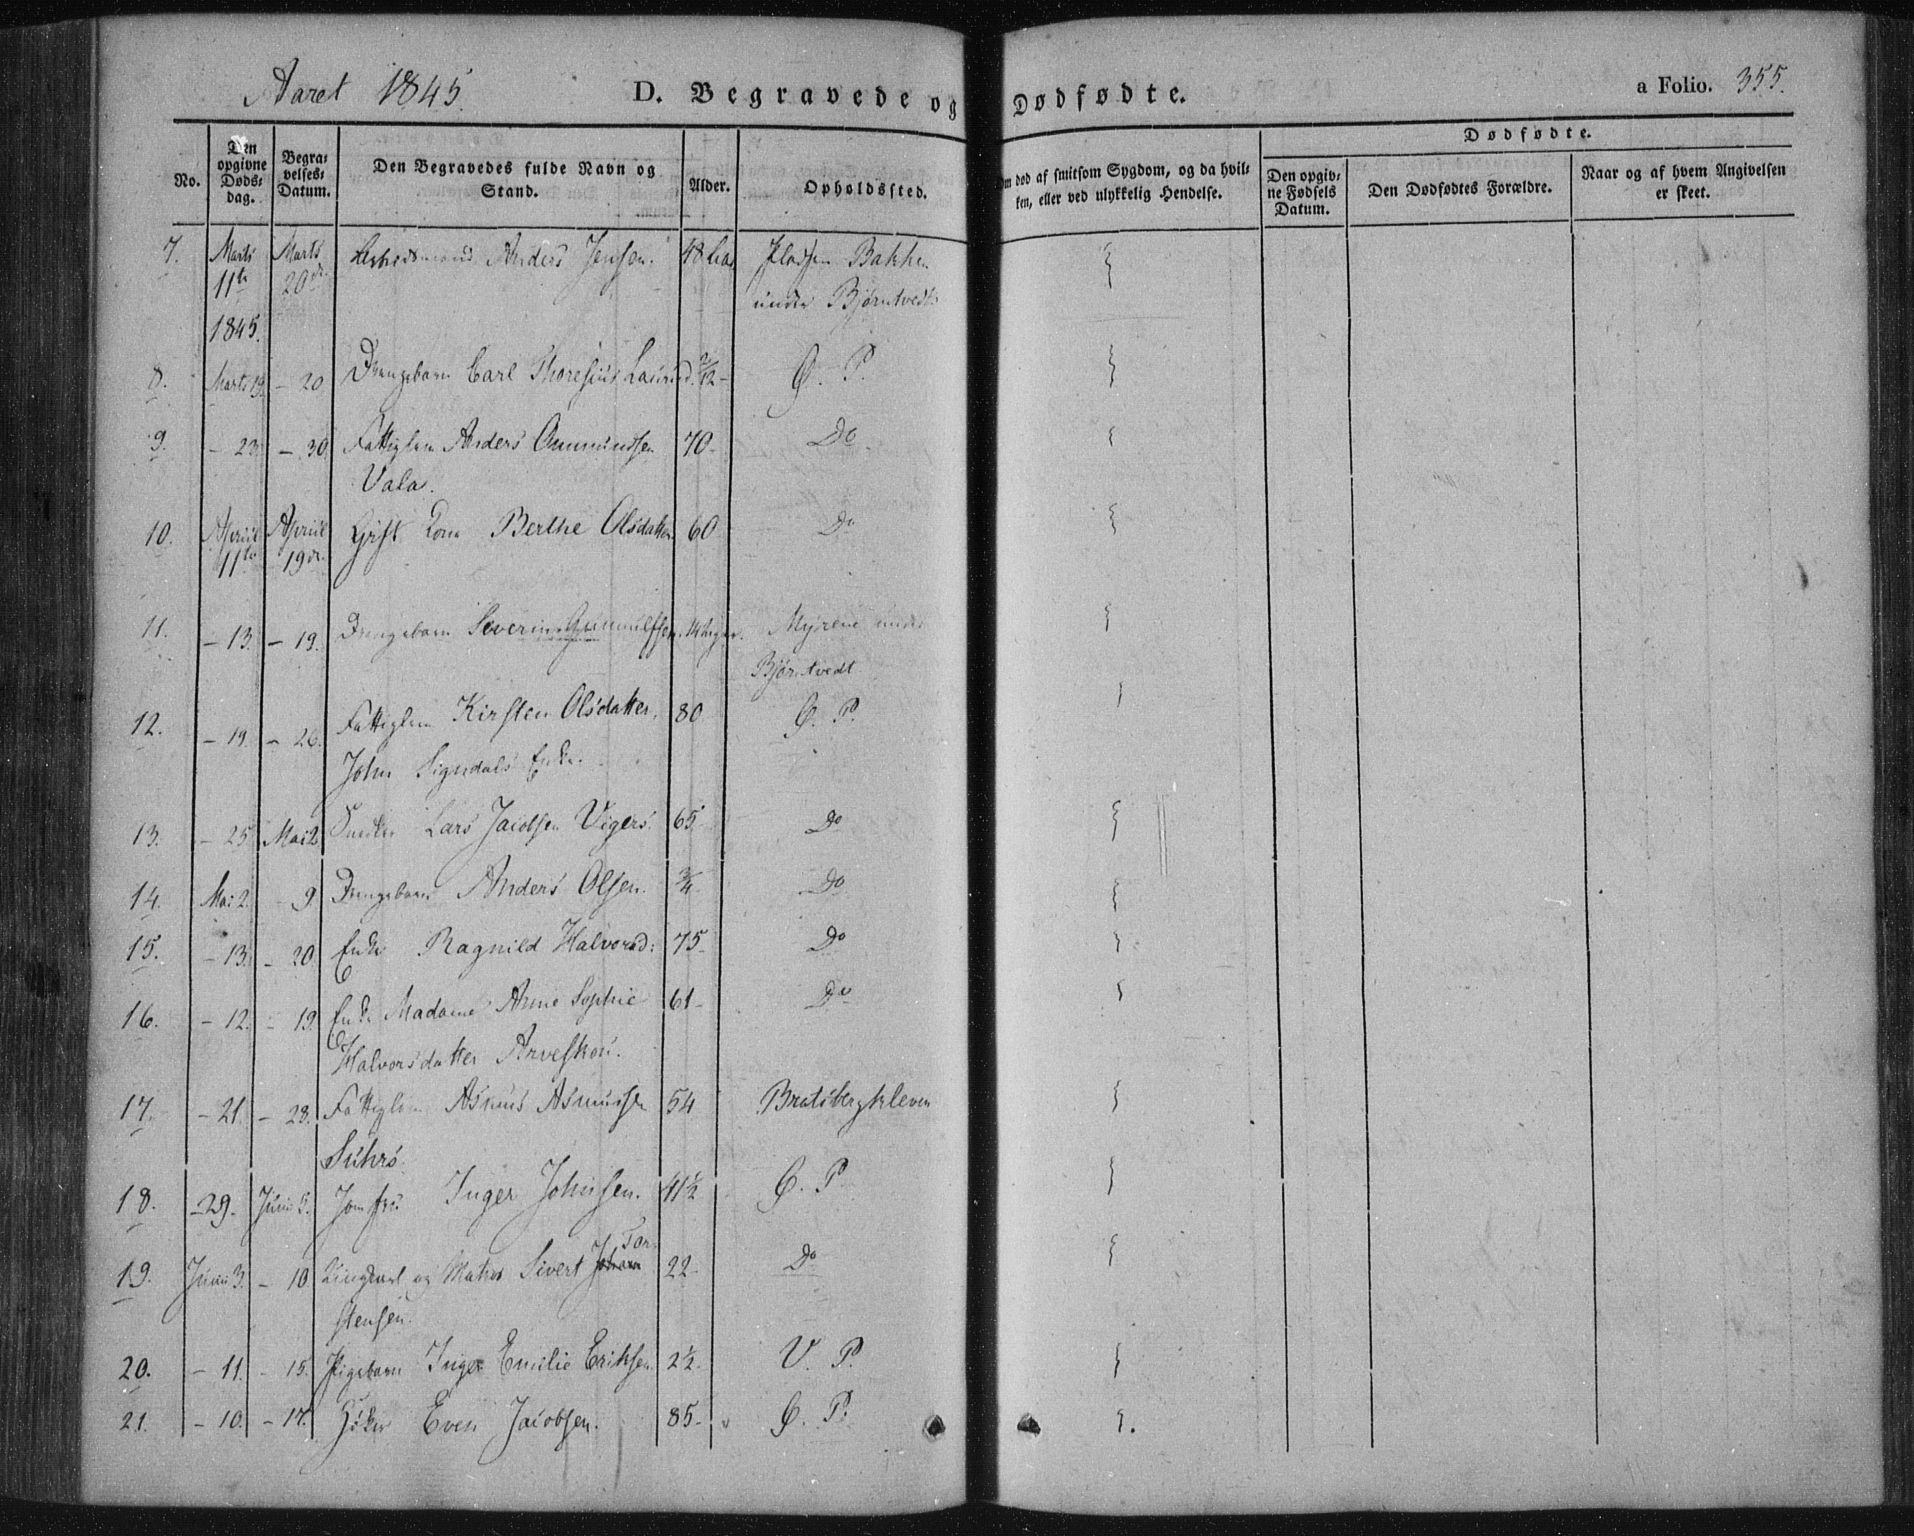 Aaret 1845. D. Begravede og Dødfødte. a Folio. 355.
No. Den opgivne Døds-dag. Begra-velses-Datum. Den Begravedes fulde Navn og Stand. Alder. Opholdssted. Om død af smitsom Sygdom, og da hvil-ken, eller ved ulykkelig Hendelse. Dødfødte.
Den opgiv-ne Fødsels Datum. Den Dødfødtes Forældre. Naar og af hvem Angivelsen er skeet.
7. Marts Marts Arbeidsmand Anders Jensen. 48 Pladsen Bakken
11te 20de under Bjørntvedt
1845.
8. Marts 19. - 20 Drengebarn Carl Thoresius 2/12 - Ø. P.
9. - 23. - 30 Fattiglem Anders Ommundsen 70 - Do
Vala.
10. Apriil Apriil Gift Kone Berthe Olsdatter 60 Do
11te 19de
11. - 13. - 19. Drengebarn Severin Gunnulfsen. Myrene under
Bjørntvedt
12. - 19. - 26. Fattiglem Kirsten Olsdatter, 80 Ø. P.
John Signdals Enke.
13. - 25. Mai 2 Snedker Lars Jacobsen Vigers. 65 Do
14. Mai 2. - 9. Drengebarn Anders Olsen. 3/4 Do
15. - 13. - 20. Enke Ragnild Halvorsd: 75 - Do
16. - 12. - 19. Enke Madame Anne Sophie 61 - Do
Halvorsdatter Arveskou.
17. - 21. - 28. Fattiglem Asmus Asmussen 54 Bratsbergkleven
Suhrs.
18. - 29. Juni 5. Jomfru Inger Johnsen. 41½ Ø. P.
19. Juni 3. - 10 Ungkarl og Matros Sivert Johann Tor- 22 - Do
stensen.
20. - 11. - 15. Pigebarn Inger Emilie Eriksen. 2½ - V. P.
21. - 10. - 17. Høker Even Jacobsen. 85 - Ø. P.